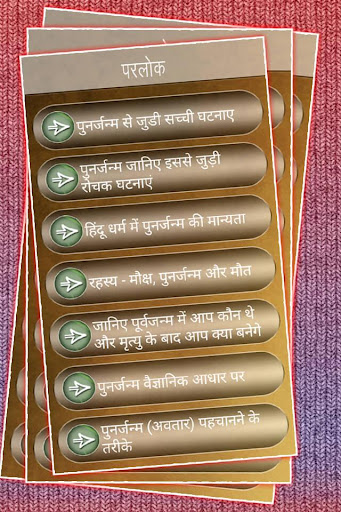 परलोक
पुनर्जन्म से जुड़ी सच्ची घटनाए
पुनर्जन्म जानिए इससे जुड़ी
रोचक घटनाएं
हिंदू धर्म में पुनर्जन्म की मान्यता
रहस्य - मौक्ष, पुनर्जन्म और मौत
जानिए पूर्वजन्म में आप कौन थे
और मृत्यु के बाद आप क्या बनेगे
पुनर्जन्म वैज्ञानिक आधार पर
पुनर्जन्म (अवतार) पहचानने के
तरीके